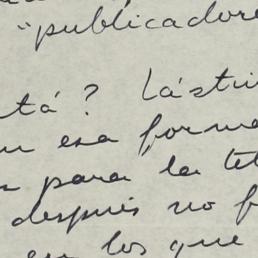 "publicadore
tá? Lásti
n esa forma
para la te
después no f
en los que